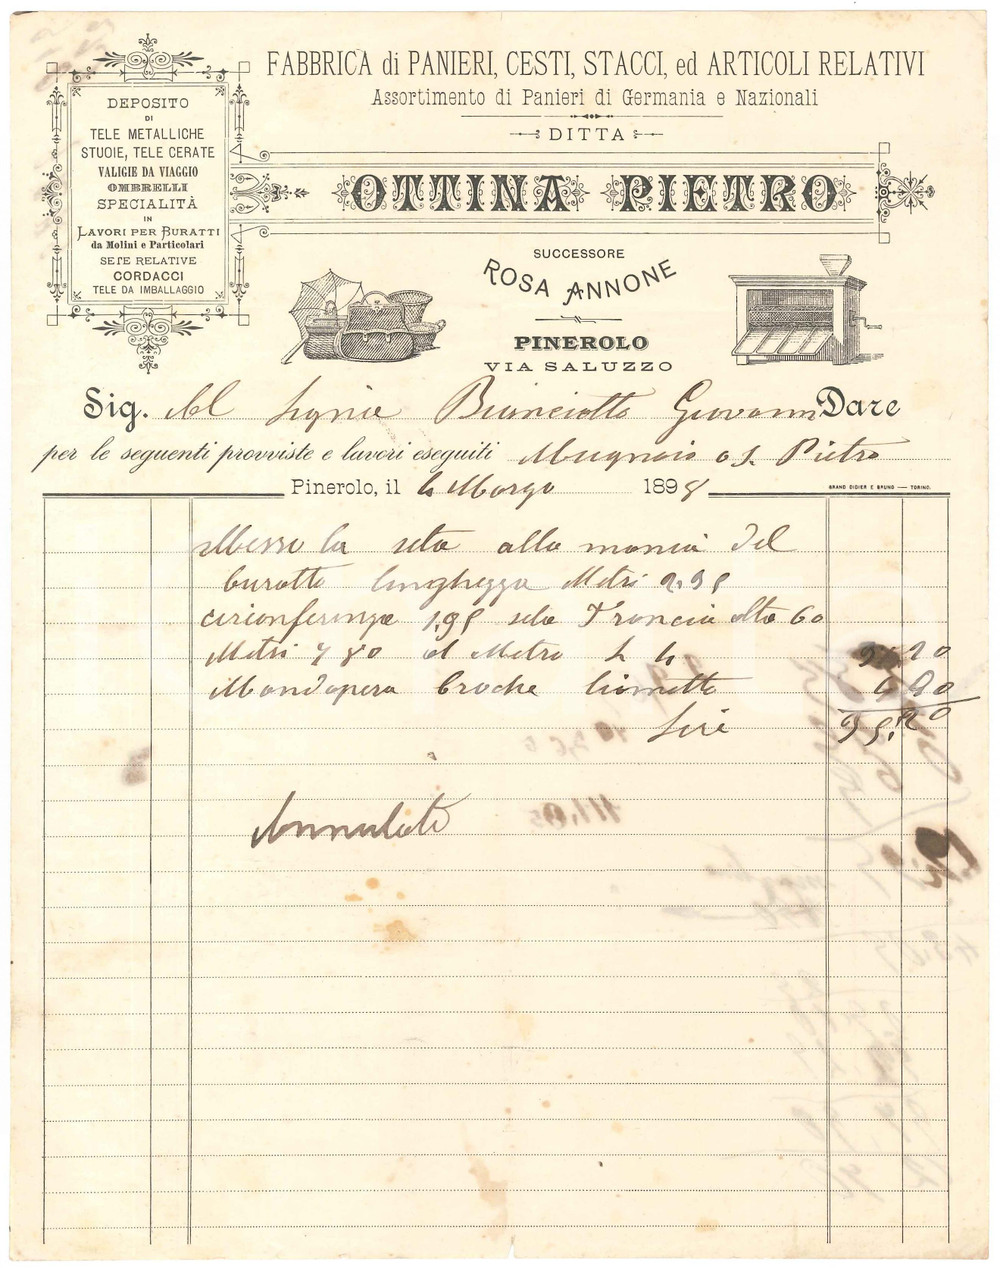 FABBRICA di PANIERI, CESTI, STACCI, ed ARTICOLI RELATIVI
Assortimento di Panieri di Germania e Nazionali
DITTA
OTTINA PIETRO
SUCCESSORE
ROSA ANNONE
PINEROLO
VIA SALUZZO
DEPOSITO
DI
TELE METALLICHE
STUOIE, TELE CERATE
VALIGIE DA VIAGGIO
OMBRELLI
SPECIALITÀ
IN
LAVORI PER BURATTI
da Molini e Particolari
SETE RELATIVE
CORDACCI
TELE DA IMBALLAGGIO
Sig. Al Signie Bianciotto Giovanni Dare
per le seguenti provviste e lavori eseguiti Mugnaio a S. Pietro
Pinerolo, il 6 Marzo 1898
GRAND DIDIER E BRUNO — TORINO.
Messo la seta alla mania del
buratto lunghezza Metri 2,95
circonferenza 1,95 seta Francia alta 60
Metri 7 80 al Metro L 4
Mandopera broche
Lire
Annulato